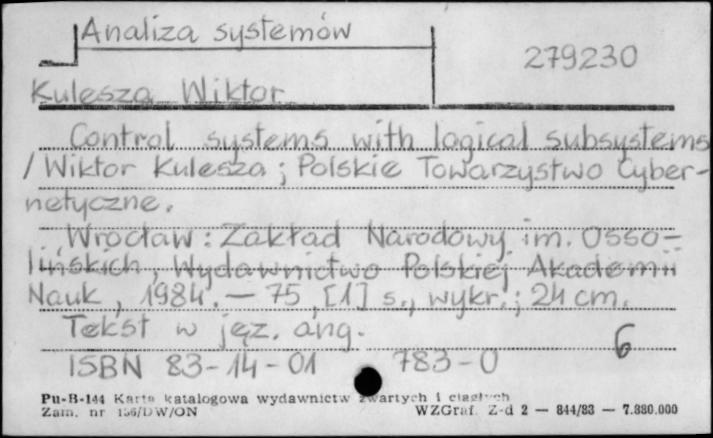 Analiza systemów
279230
Kulesza Wiktor
Control systems with logical subsystems
/ Wiktor Kulesza ; Polskie Towarzystwo Cyber-
netyczne.
Wrocław : Zakład Narodowy im. Osso-
lińskich, Wydawnictwo Polskiej Akademii
Nauk, 1984. — 75, [1] s., wykr. ; 24 cm.
Tekst w jęz. ang.
6
ISBN 83-14-01 783-0
Pu-B-144 Karta katalogowa wydawnictw zwartych i ciągłych
Zam. nr 156/DW/ON WZGraf. Z-d 2 — 844/83 — 7.880.000